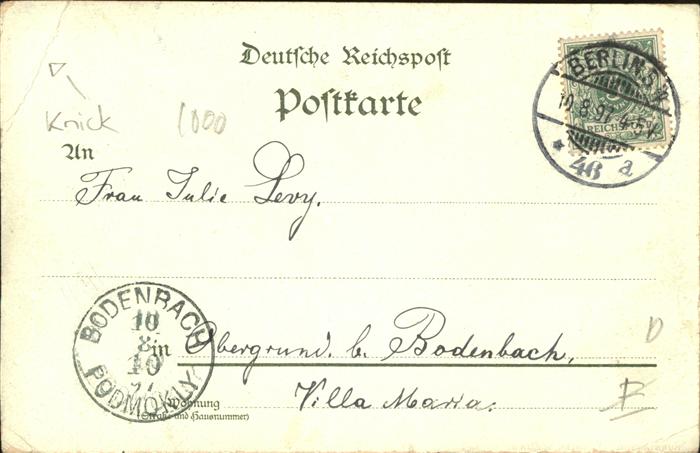 Deutsche Reichspost
Postkarte
BERLIN S.W.
10.8.97. 4-5 N.
REICHSPOST
* 46 a
Knick
1000
An
Frau Julie Levy.
BODENBACH
10
8
10
97
PODMOKLY
in Obergrund. b. Bodenbach,
Villa Maria.
Wohnung
(Straße und Hausnummer)
D
F